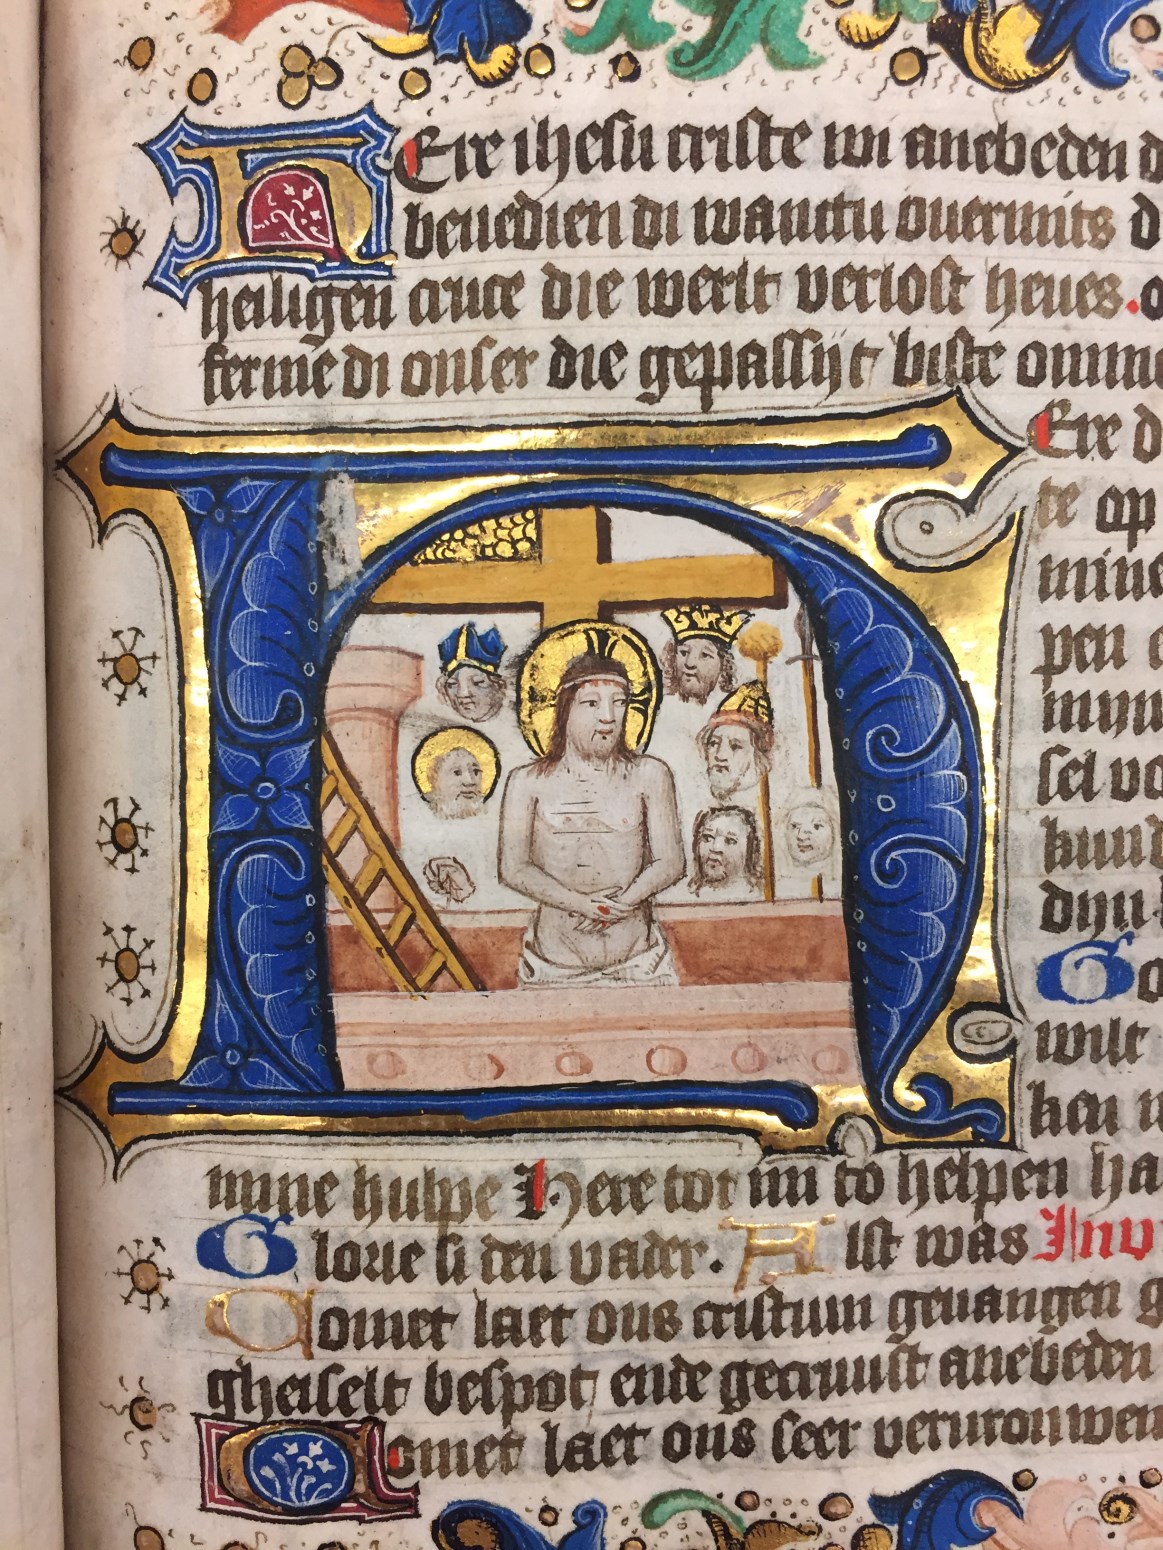 HEre ihesu criste wi anebeden
benedien di wantu ouermits
heiligen cruce die werlt verlost heues.
ferme di onser die gepassijt biste
HEre
te op
mine
pen
sel vo
Go
wilt
mine hulpe Here tot mi to helpen ha
Glorie si den vader. Alst was Inv
Comet laet ons cristum geuangen
gheiselt bespot ende gecruust anebeden
Comet laet ons seer verurouwen